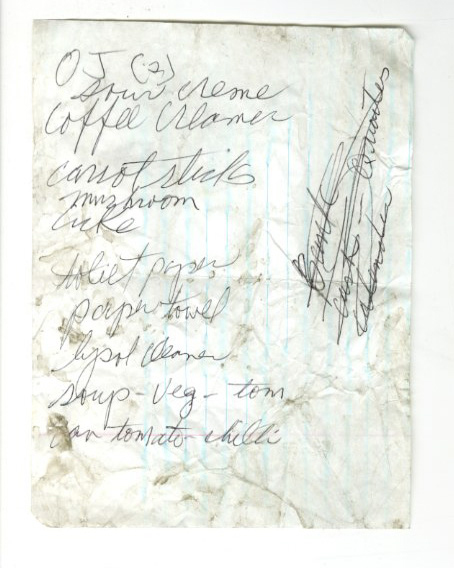 OJ (2)
sour creme
coffee creamer
carrot sticks
mushroom
cuke
toliet paper
paper towel
lysol cleaner
soup-veg-tom
can tomato-chilli
Bank
cash - Quarters
calendar